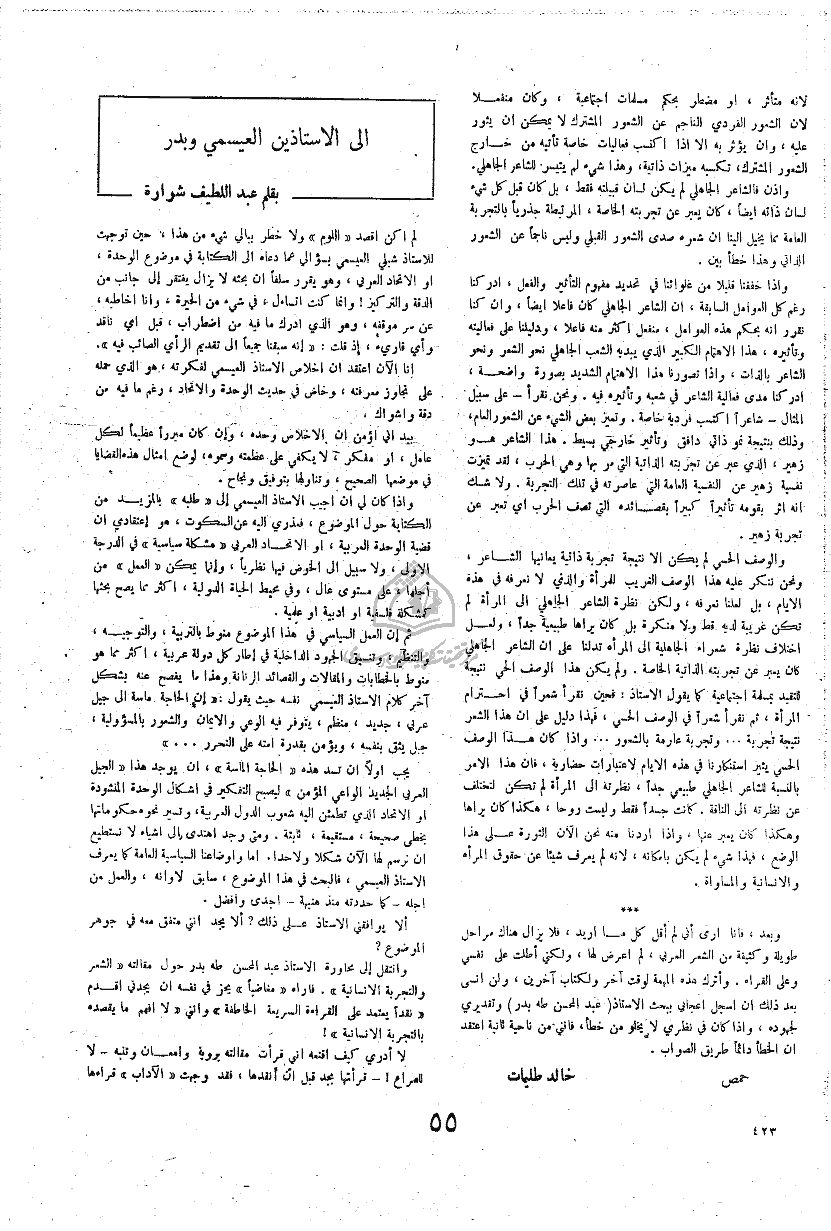 لانه متأثر ، او مضطر بحكم مسلمات اجتماعية ، وكان منفعلا
لان الشعور الفردي الناجم عن الشعور المشترك لا يمكن ان يثور
عليه ، وان يؤثر به الا اذا اكتسب فعاليات خاصة تأتيه من خارج
الشعور المشترك، تكسبه ميزات ذاتية، وهذا شيء لم يتيسر للشاعر الجاهلي.
واذن فالشاعر الجاهلي لم يكن لسان قبيلته فقط ، بل كان قبل كل شيء
لسان ذاته ايضاً ، كان يعبر عن تجربته الخاصة ، المرتبطة جذرياً بالتجربة
العامة مما يخيل الينا ان شعره صدى الشعور القبلي وليس ناتجاً عن الشعور
الذاتي وهذا خطأ بين .
واذا خففنا قليلا من غلوائنا في تحديد مفهوم التأثير والفعل ، ادركنا
رغم كل العوامل السابقة ، ان الشاعر الجاهلي كان فاعلا ايضاً ، وان كنا
نقرر انه بحكم هذه العوامل ، منفعل اكثر منه فاعلا ، ودليلنا على فعاليته
وتأثيره ، هذا الاهتمام الكبير الذي يبديه الشعب الجاهلي نحو الشعر ونحو
الشاعر بالذات ، واذا تصورنا هذا الاهتمام الشديد بصورة واضحة ،
ادركنا مدى فعالية الشاعر في شعبه وتأثيره فيه . ونحن نقرأ – على سبيل
المثال – شاعراً اكتسب فردية خاصة . وتميز بعض الشيء عن الشعور العام،
وذلك بنتيجة نمو ذاتي دافق وتأثير خارجي بسيط . هذا الشاعر هو
زهير ، الذي عبر عن تجربته الذاتية التي مر بها وهي الحرب ، لقد تميزت
نفسية زهير عن النفسية العامة التي عاصرته في تلك التجربة . ولا شك
انه اثر بقومه تأثيراً كبيراً بقصائده التي تصف الحرب اي تعبر عن
تجربة زهير .
والوصف الحسي لم يكن الا نتيجة تجربة ذاتية يعانيها الشاعر ،
ونحن ننكر عليه هذا الوصف الغريب للمرأة والذي لا نعرفه في هذه
الايام ، بل لعلنا نعرفه ، ولكن نظرة الشاعر الجاهلي الى المرأة لم
تكن غريبة لديه قط ولا منكرة بل كان يراها طبيعية جداً ، ولعل
اختلاف نظرة شعراء الجاهلية الى المرأة تدلنا على ان الشاعر الجاهلي
كان يعبر عن تجربته الذاتية الخاصة . ولم يكن هذا الوصف الحي نتيجة
للتقيد بمسلمة اجتماعية كما يقول الاستاذ : فحين نقرأ شعراً في احترام
المرأة ، ثم نقرأ شعراً في الوصف الحسي ، فهذا دليل على ان هذا الشعر
نتيجة تجربة ... وتجربة عارمة بالشعور ... واذا كان هذا الوصف
الحسي يثير استنكارنا في هذه الايام لاعتبارات حضارية ، فان هذا الامر
بالنسبة للشاعر الجاهلي طبيعي جداً ، نظرته الى المرأة لم تكن لتختلف
عن نظرته الى الناقة . كانت جسداً فقط وليست روحا ، هكذا كان يراها
وهكذا كان يعبر عنها ، واذا اردنا منه نحن الآن الثورة على هذا
الوضع ، فهذا شيء لم يكن بامكانه ، لانه لم يعرف شيئا عن حقوق المرأه
والانسانية والمساواة .
***
وبعد ، فانا ارى أني لم أقل كل ما اريد ، فلا يزال هناك مراحل
طويلة وكثيفة من الشعر العربي ، لم اعرض لها ، ولكني أطلت على نفسي
وعلى القراء . وأترك هذه المهمة لوقت آخر ولكتاب آخرين ، ولن انسى
بعد ذلك ان اسجل اعجابي ببحث الاستاذ( عبد المحسن طه بدر) وتقديري
لجهوده ، واذا كان في نظري لا يخلو من خطأ، فانني من ناحية ثانية اعتقد
ان الخطأ دائماً طريق الصواب .
حمص خالد طليمات
الى الاستاذين العيسمي وبدر
بقلم عبد اللطيف شرارة
لم اكن اقصد « اللوم » ولا خطر ببالي شيء من هذا ، حين توجهت
للاستاذ شبلي العيسمي بسؤالي عما دعاه الى الكتابة في موضوع الوحدة ،
او الاتحاد العربي ، وهو يقرر سلفاً ان بحثه لا يزال يفتقر إلى جانب من
الدقة والتركيز ! وانما كنت اتساءل ، في شيء من الحيرة ، وانا اخاطبه ،
عن سر موقفه ، وهو الذي ادرك ما فيه من اضطراب ، قبل اي ناقد
وأي قارىء ، إذ قلت : « إنه سبقنا جميعاً الى تقديم الرأي الصائب فيه ».
إنا الآن أعتقد ان اخلاص الاستاذ العيسمي لفكرته ، هو الذي حمله
على تجاوز معرفته ، وخاض في حديث الوحدة والاتحاد ، رغم ما فيه من
دقة واشواك ،
بيد اني أؤمن ان الاخلاص وحده ، وإن كان مبرراً عظيماً لكل
عامل ، او مفكر لا يكفي على عظمته وسموه، لوضع امثال هذه القضايا
في موضعها الصحيح ، وتناولها بتوفيق ونجاح .
واذا كان لي ان اجيب الاستاذ العيسمي إلى « طلبه » بالمزيد من
الكتابة حول الموضوع ، فعذري اليه عن السكوت ، هو إعتقادي ان
قضية الوحدة العربية ، او الاتحاد العربي « مشكلة سياسية » في الدرجة
الاولى ، ولا سبيل الى الخوض فيها نظرياً ، وإنما يمكن « العمل » من
أجلها ، على مستوى عال ، وفي محيط الحياة الدولية ، اكثر مما يصح بحثها
كمشكلة فلسفية او ادبية او علمية .
ثم إن العمل السياسي في هذا الموضوع منوط بالتربية ، والتوجيه ،
والتنظيم ، وتنسيق الجهود الداخلية في إطار كل دولة عربية ، اكثر مما هو
منوط بالخطابات والمقالات والقصائد الرنانة وهذا ما يفصح عنه بشكل
آخر كلام الاستاذ العيسمي نفسه حيث يقول : « إن الحاجة ماسة الى جيل
عربي ، جديد ، منظم ، يتوفر فيه الوعي والايمان والشعور بالمسؤولية ،
جيل يثق بنفسه ، ويؤمن بقدرة امته على التحرر ... »
يجب اولاً ان تسد هذه « الحاجة الماسة » ، ان يوجد هذا « الجيل
العربي الجديد الواعي المؤمن » ليصبح التفكير في اشكال الوحدة المنشودة
او الاتحاد الذي تطمئن اليه شعوب الدول العربية، وتسير نحوه حكوماتها
بخطى صحيحة ، مستقيمة ، ثابتة . ومتى وجد اهتدى إلى اشياء لا نستطيع
ان نرسم لها الآن شكلا ولا حدا. اما واوضاعنا السياسية العامة كما يعرف
الاستاذ العيسمي ، فالبحث في هذا الموضوع ، سابق لاوانه ، والعمل من
اجله – كما حددته منذ هنيهة – اجدى وافضل .
ألا يوافقني الاستاذ على ذلك ؟ ألا يجد انني متفق معه في جوهر
الموضوع ؟
وانتقل إلى محاورة الاستاذ عبد المحسن طه بدر حول مقالته « الشعر
والتجربة الانسانية » . فاراه « مغاضباً » يحز في نفسه ان يجدني اقدم
« نقداً يعتمد على القراءة السريعة الخاطفة » وانني « لا افهم ما يقصده
بالتجربة الانسانية » !
لا أدري كيف اقنعه اني قرأت مقالته بروية وامعان وتنبه – لا
للصراع ! – قرأتها بجد قبل ان أنقدها ، فقد وجهت « الآداب » قراءها
٥٥
٤٢٣